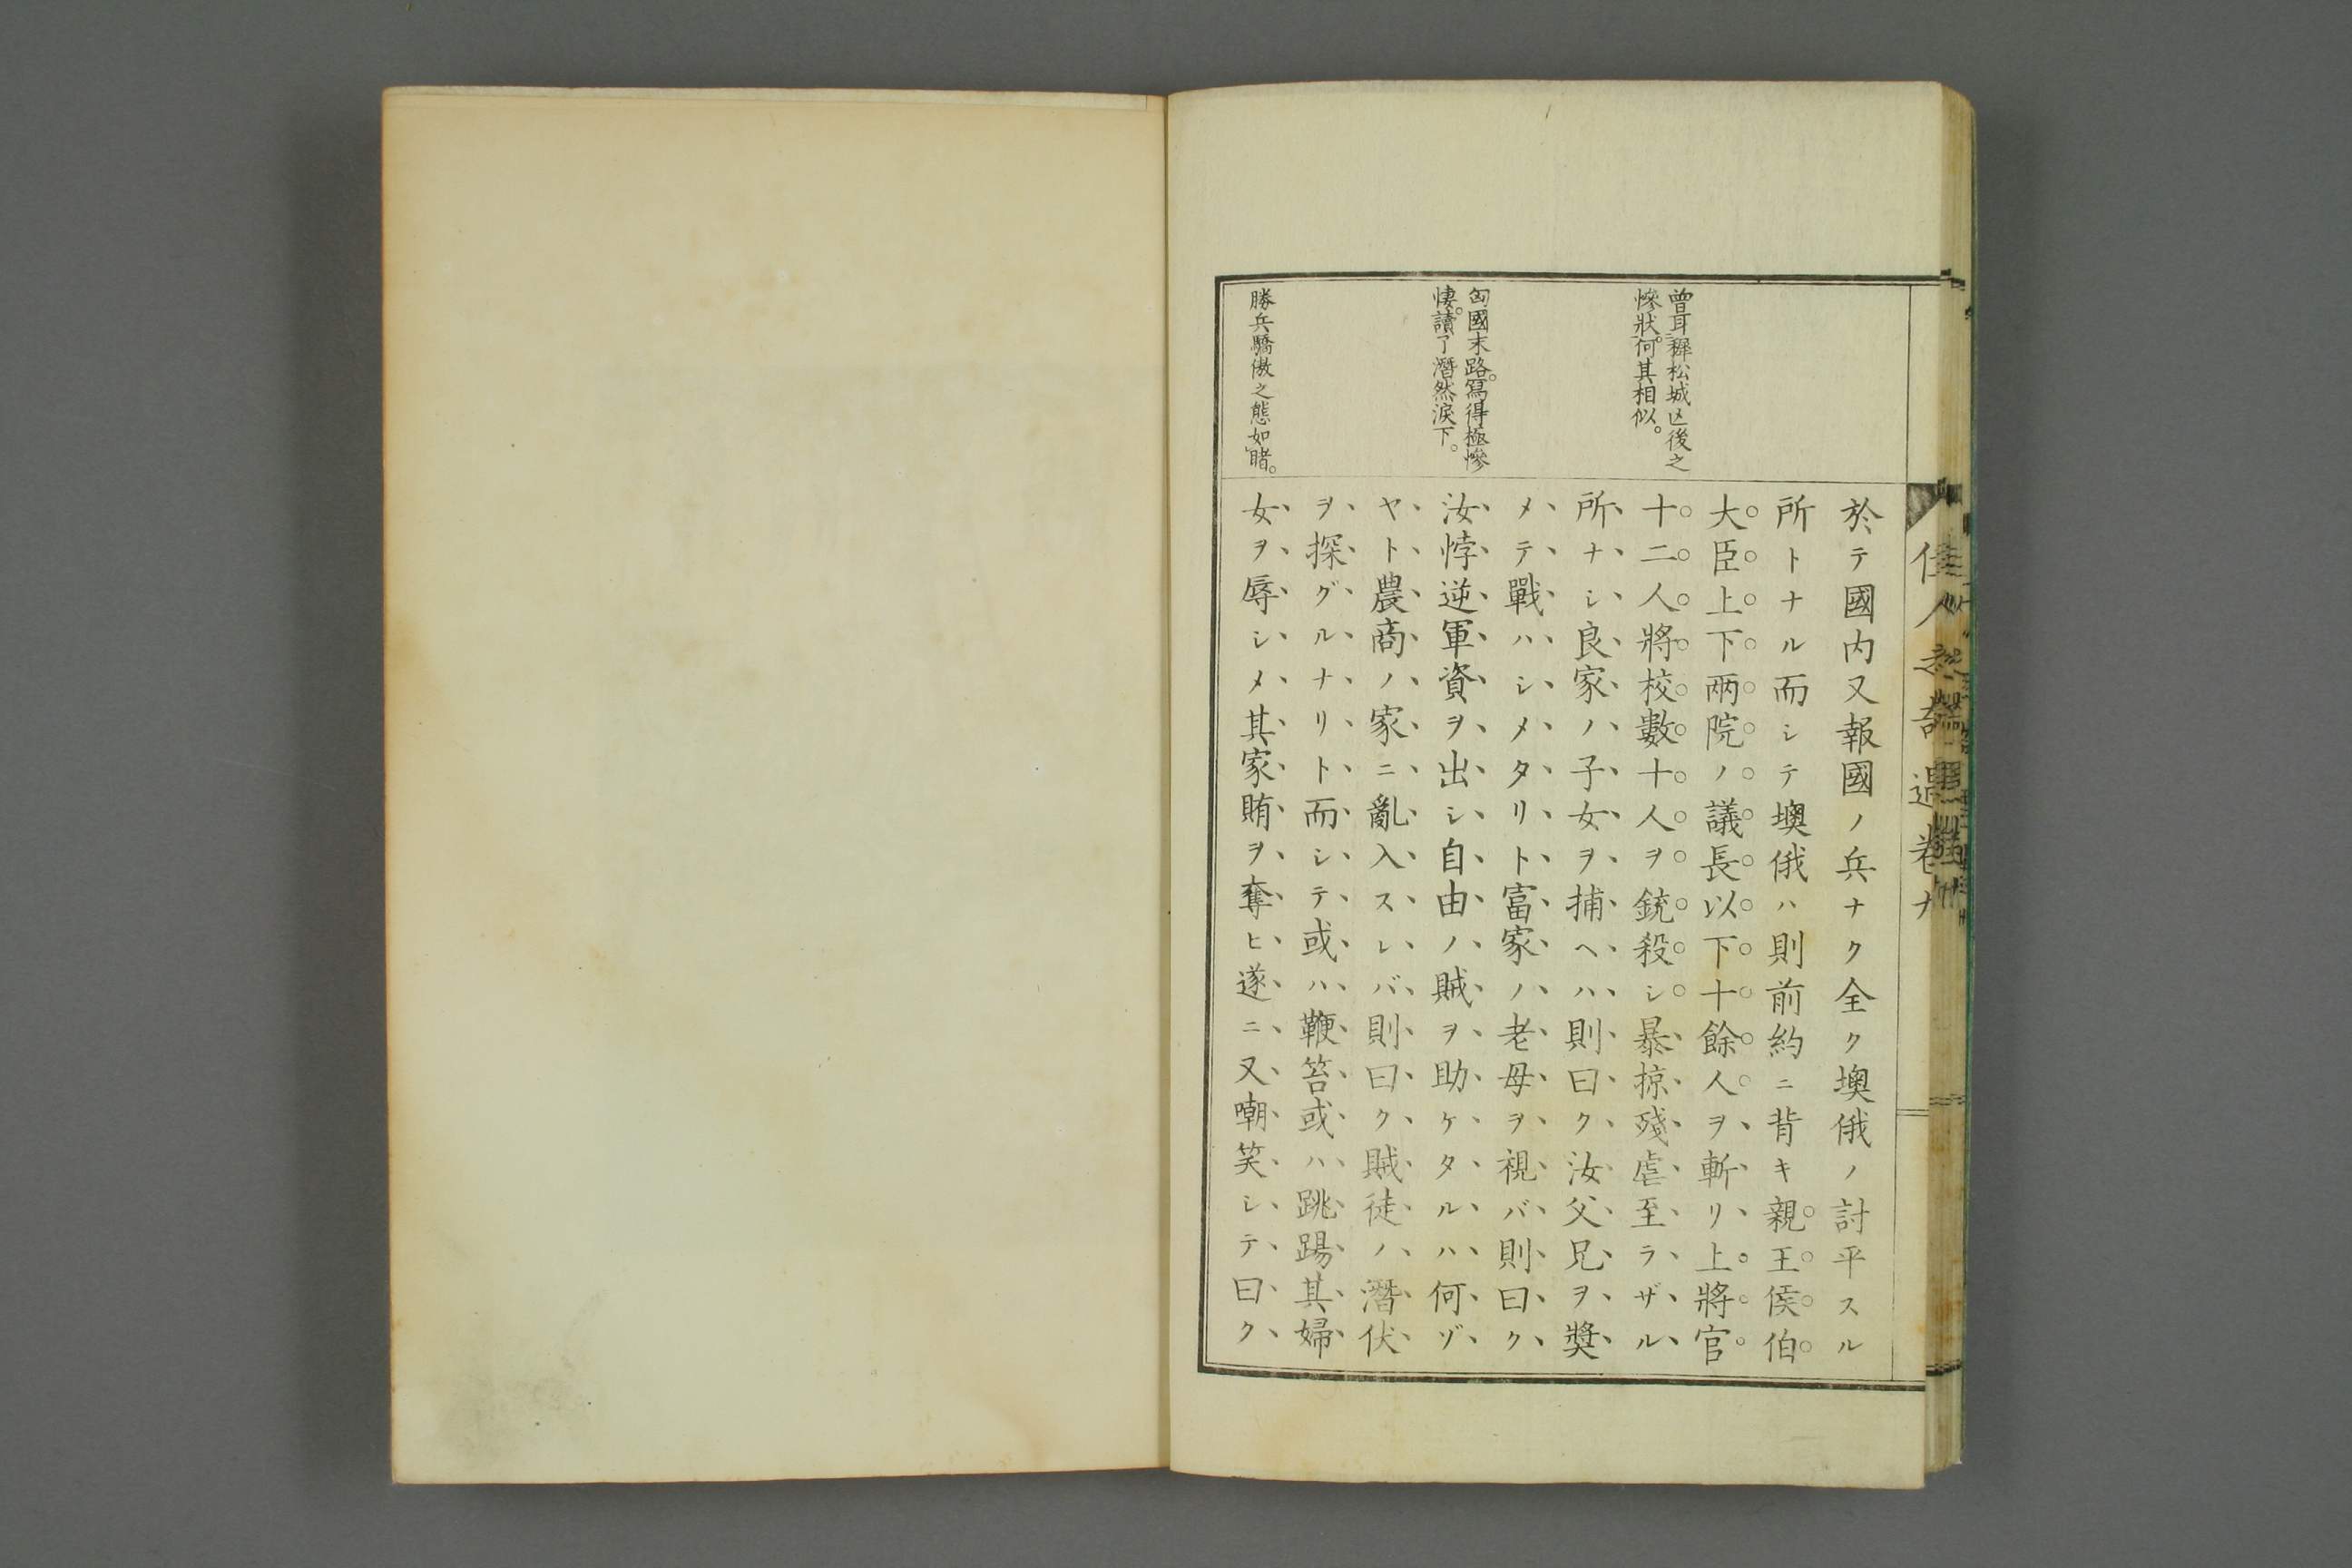 佳人之奇遇卷十
於テ國内又報國ノ兵ナク全ク墺俄ノ討平スル
所トナル而シテ墺俄ハ則前約ニ背キ親王侯伯
大臣上下兩院ノ議長以下十餘人ヲ斬リ上將官
十二人將校數十人ヲ銃殺シ暴掠殘虐至ラザル
所ナシ良家ノ子女ヲ捕ヘハ則曰ク汝父兄ヲ奬
メテ戰ハシメタリト富家ノ老母ヲ視バ則曰ク
汝悖逆軍資ヲ出シ自由ノ賊ヲ助ケタルハ何ゾ
ヤト農商ノ家ニ亂入スレバ則曰ク賊徒ノ潛伏
ヲ探グルナリト而シテ或ハ鞭笞或ハ跳踢其婦
女ヲ辱シメ其家賄ヲ奪ヒ遂ニ又嘲笑シテ曰ク
曾耳穉松城亾後之
慘狀。何其相似。
匈國末路。寫得極慘
悽。讀了潛然淚下。
勝兵驕傲之態如睹。